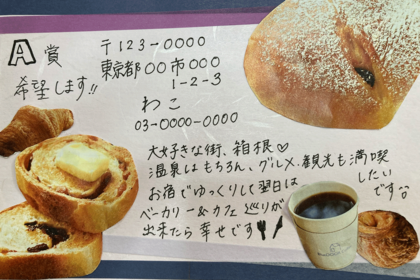 A賞
希望します!!
〒123-0000
東京都〇〇市〇〇〇
1-2-3
わこ
03-0000-0000
大好きな街、箱根♡
温泉はもちろん、グルメ、観光も満喫
したい
です
お宿でゆっくりして翌日は
ベーカリー&カフェ巡りが
出来たら幸せです